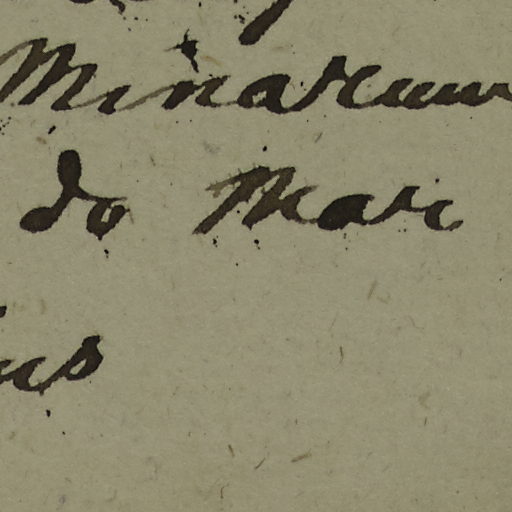 Minarum
do Mari
us